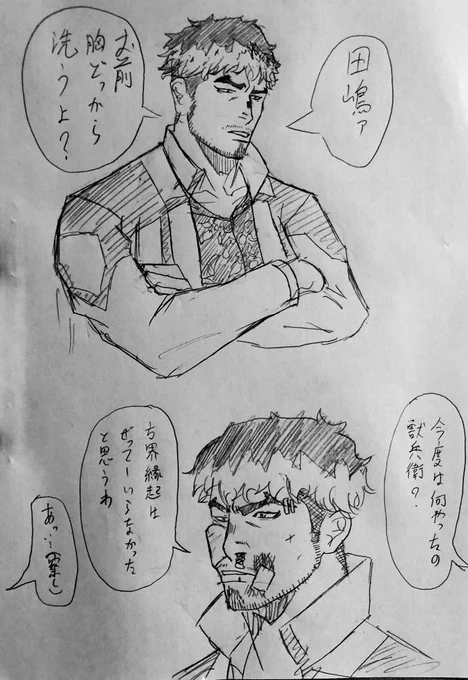 田嶋ァ
お前
胸どっから
洗うよ?
今度は何やったの
獣兵衛の.
方界縁起は
ぜってーいらなかった
と思うわ
あっ…(察し)